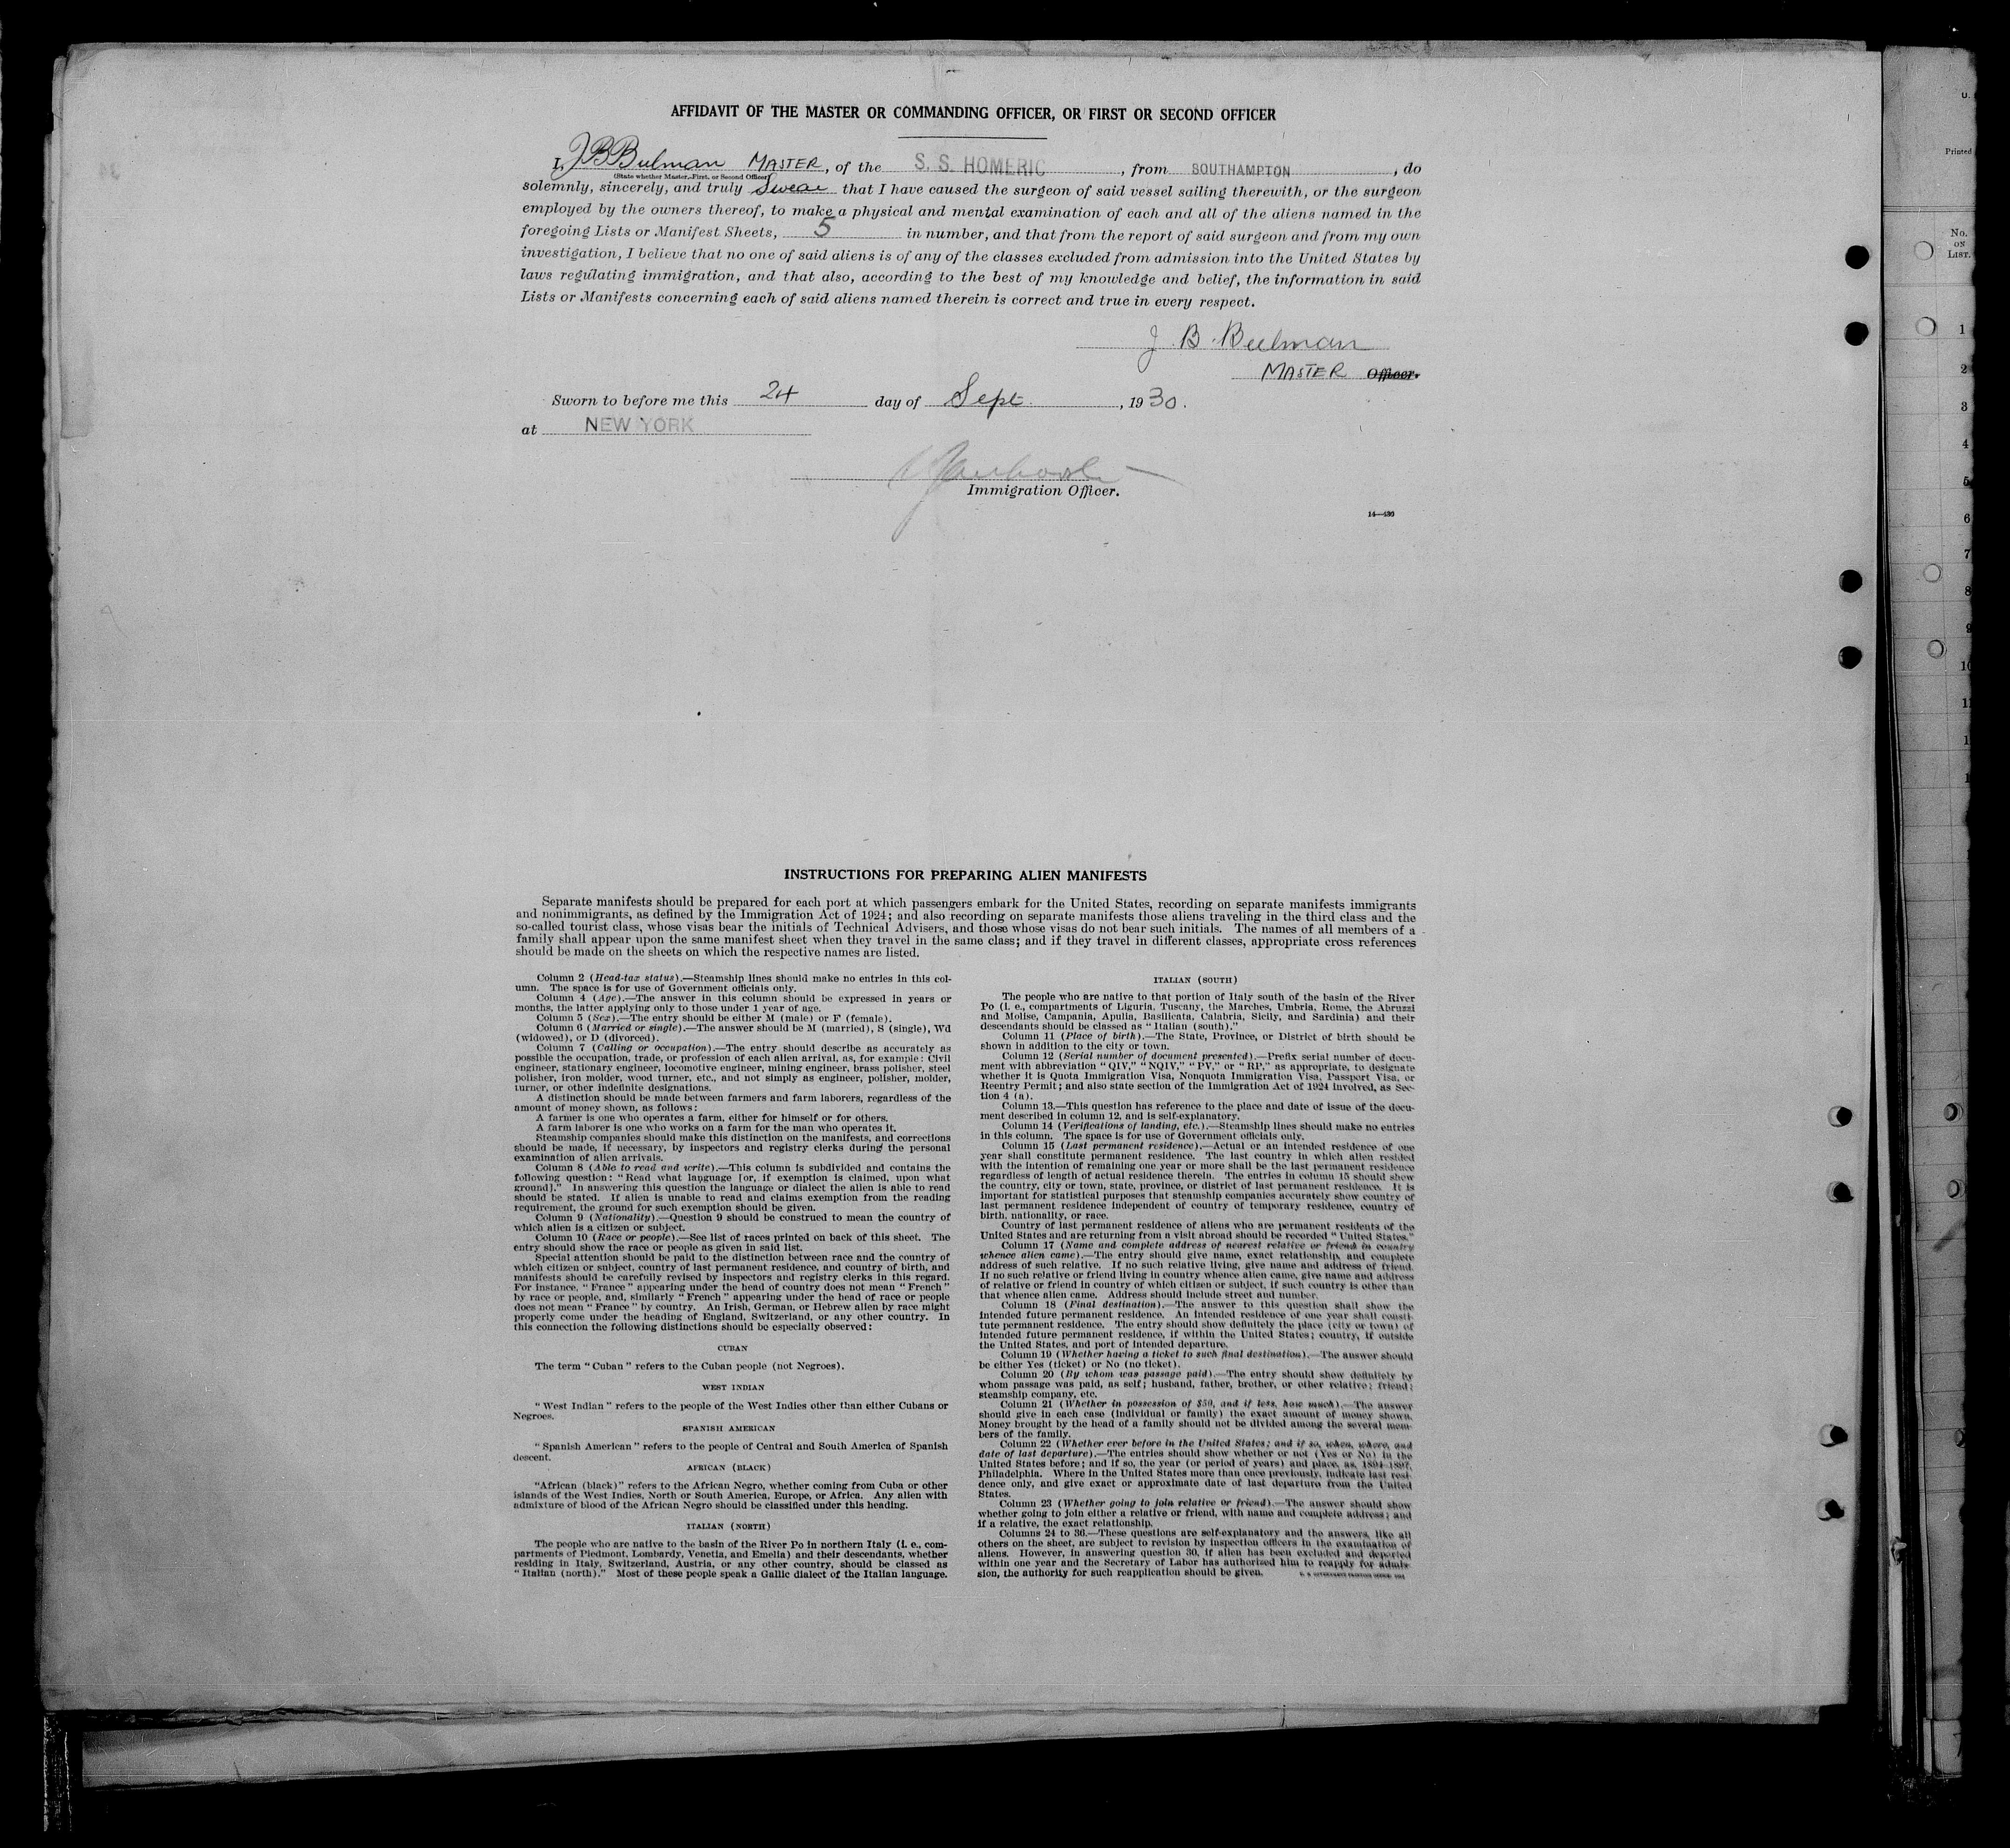 AFFIDAVIT OF THE MASTER OR COMMANDING OFFICER, OR FIRST OR SECOND OFFICER
I, J B Bulman MASTER, of the S. S. HOMERIC, from SOUTHAMPTON, do
(State whether Master, First, or Second Officer)
solemnly, sincerely, and truly Swear that I have caused the surgeon of said vessel sailing therewith, or the surgeon
employed by the owners thereof, to make a physical and mental examination of each and all of the aliens named in the
foregoing Lists or Manifest Sheets, 5 in number, and that from the report of said surgeon and from my own
investigation, I believe that no one of said aliens is of any of the classes excluded from admission into the United States by
laws regulating immigration, and that also, according to the best of my knowledge and belief, the information in said
Lists or Manifests concerning each of said aliens named therein is correct and true in every respect.
J. B. Bulman
MASTER Officer.
Sworn to before me this 24 day of Sept., 1930.
at NEW YORK
Immigration Officer.
14—430
INSTRUCTIONS FOR PREPARING ALIEN MANIFESTS
Separate manifests should be prepared for each port at which passengers embark for the United States, recording on separate manifests immigrants
and nonimmigrants, as defined by the Immigration Act of 1924; and also recording on separate manifests those aliens traveling in the third class and the
so-called tourist class, whose visas bear the initials of Technical Advisers, and those whose visas do not bear such initials. The names of all members of a
family shall appear upon the same manifest sheet when they travel in the same class; and if they travel in different classes, appropriate cross references
should be made on the sheets on which the respective names are listed.
Column 2 (Head-tax status).—Steamship lines should make no entries in this col-
umn. The space is for use of Government officials only.
Column 4 (Age).—The answer in this column should be expressed in years or
months, the latter applying only to those under 1 year of age.
Column 5 (Sex).—The entry should be either M (male) or F (female).
Column 6 (Married or single).—The answer should be M (married), S (single), Wd
(widowed), or D (divorced).
Column 7 (Calling or occupation).—The entry should describe as accurately as
possible the occupation, trade, or profession of each alien arrival, as, for example: Civil
engineer, stationary engineer, locomotive engineer, mining engineer, brass polisher, steel
polisher, iron molder, wood turner, etc., and not simply as engineer, polisher, molder,
turner, or other indefinite designations.
A distinction should be made between farmers and farm laborers, regardless of the
amount of money shown, as follows:
A farmer is one who operates a farm, either for himself or for others.
A farm laborer is one who works on a farm for the man who operates it.
Steamship companies should make this distinction on the manifests, and corrections
should be made, if necessary, by inspectors and registry clerks during the personal
examination of alien arrivals.
Column 8 (Able to read and write).—This column is subdivided and contains the
following question: "Read what language [or, if exemption is claimed, upon what
ground]." In answering this question the language or dialect the alien is able to read
should be stated. If alien is unable to read and claims exemption from the reading
requirement, the ground for such exemption should be given.
Column 9 (Nationality).—Question 9 should be construed to mean the country of
which alien is a citizen or subject.
Column 10 (Race or people).—See list of races printed on back of this sheet. The
entry should show the race or people as given in said list.
Special attention should be paid to the distinction between race and the country of
which citizen or subject, country of last permanent residence, and country of birth, and
manifests should be carefully revised by inspectors and registry clerks in this regard.
For instance, "France" appearing under the head of country does not mean "French"
by race or people, and, similarly "French" appearing under the head of race or people
does not mean "France" by country. An Irish, German, or Hebrew alien by race might
properly come under the heading of England, Switzerland, or any other country. In
this connection the following distinctions should be especially observed:
CUBAN
The term "Cuban" refers to the Cuban people (not Negroes).
WEST INDIAN
"West Indian" refers to the people of the West Indies other than either Cubans or
Negroes.
SPANISH AMERICAN
"Spanish American" refers to the people of Central and South America of Spanish
descent.
AFRICAN (BLACK)
"African (black)" refers to the African Negro, whether coming from Cuba or other
islands of the West Indies, North or South America, Europe, or Africa. Any alien with
admixture of blood of the African Negro should be classified under this heading.
ITALIAN (NORTH)
The people who are native to the basin of the River Po in northern Italy (i. e., com-
partments of Piedmont, Lombardy, Venetia, and Emelia) and their descendants, whether
residing in Italy, Switzerland, Austria, or any other country, should be classed as
"Italian (north)." Most of these people speak a Gallic dialect of the Italian language.
ITALIAN (SOUTH)
The people who are native to that portion of Italy south of the basin of the River
Po (i. e., compartments of Liguria, Tuscany, the Marches, Umbria, Rome, the Abruzzi
and Molise, Campania, Apulia, Basilicata, Calabria, Sicily, and Sardinia) and their
descendants should be classed as "Italian (south)."
Column 11 (Place of birth).—The State, Province, or District of birth should be
shown in addition to the city or town.
Column 12 (Serial number of document presented).—Prefix serial number of docu-
ment with abbreviation "QIV," "NQIV," "PV," or "RP," as appropriate, to designate
whether it is Quota Immigration Visa, Nonquota Immigration Visa, Passport Visa, or
Reentry Permit; and also state section of the Immigration Act of 1924 involved, as Sec-
tion 4 (a).
Column 13.—This question has reference to the place and date of issue of the docu-
ment described in column 12, and is self-explanatory.
Column 14 (Verifications of landing, etc.).—Steamship lines should make no entries
in this column. The space is for use of Government officials only.
Column 15 (Last permanent residence).—Actual or an intended residence of one
year shall constitute permanent residence. The last country in which alien resided
with the intention of remaining one year or more shall be the last permanent residence
regardless of length of actual residence therein. The entries in column 15 should show
the country, city or town, state, province, or district of last permanent residence. It is
important for statistical purposes that steamship companies accurately show country of
last permanent residence independent of country of temporary residence, country of
birth, nationality, or race.
Country of last permanent residence of aliens who are permanent residents of the
United States and are returning from a visit abroad should be recorded "United States."
Column 17 (Name and complete address of nearest relative or friend in country
whence alien came).—The entry should give name, exact relationship, and complete
address of such relative. If no such relative living, give name and address of friend.
If no such relative or friend living in country whence alien came, give name and address
of relative or friend in country of which citizen or subject, if such country is other than
that whence alien came. Address should include street and number.
Column 18 (Final destination).—The answer to this question shall show the
intended future permanent residence. An intended residence of one year shall consti-
tute permanent residence. The entry should show definitely the place (city or town) of
intended future permanent residence, if within the United States; country, if outside
the United States, and port of intended departure.
Column 19 (Whether having a ticket to such final destination).—The answer should
be either Yes (ticket) or No (no ticket).
Column 20 (By whom was passage paid).—The entry should show definitely by
whom passage was paid, as self; husband, father, brother, or other relative; friend;
steamship company, etc.
Column 21 (Whether in possession of $50, and if less, how much).—The answer
should give in each case (individual or family) the exact amount of money shown.
Money brought by the head of a family should not be divided among the several mem-
bers of the family.
Column 22 (Whether ever before in the United States; and if so, when, where, and
date of last departure).—The entries should show whether or not (Yes or No) in the
United States before; and if so, the year (or period of years) and place, as, 1894-1897,
Philadelphia. Where in the United States more than once previously, indicate last resi-
dence only, and give exact or approximate date of last departure from the United
States.
Column 23 (Whether going to join relative or friend).—The answer should show
whether going to join either a relative or friend, with name and complete address; and
if a relative, the exact relationship.
Columns 24 to 36.—These questions are self-explanatory and the answers, like all
others on the sheet, are subject to revision by inspection officers in the examination of
aliens. However, in answering question 30, if alien has been excluded and deported
within one year and the Secretary of Labor has authorized him to reapply for admis-
sion, the authority for such reapplication should be given.
U.
Printed
No.
ON
LIST.
1
2
3
4
5
6
7
8
9
10